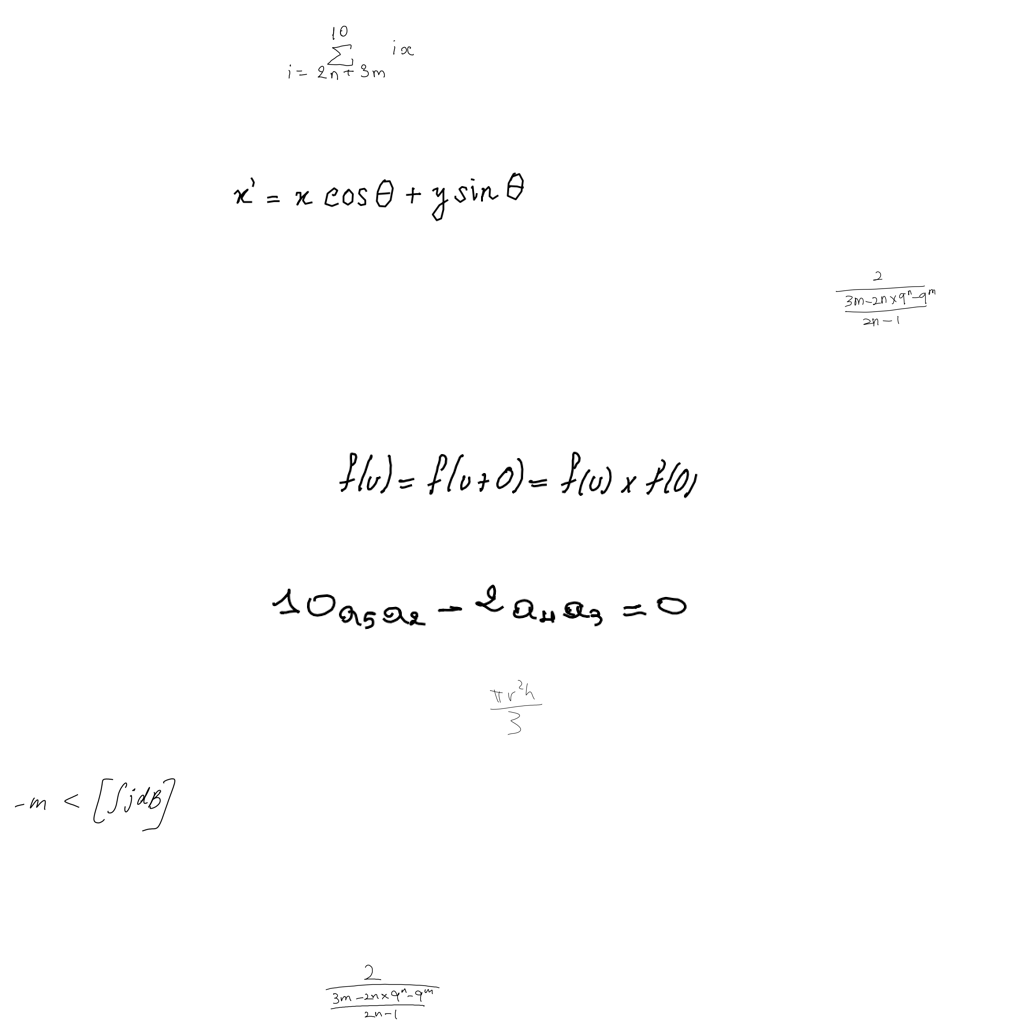 \sum_{i=2n+3m}^{10} ix
x' = x cos θ + y sin θ
\frac{2}{\frac{3m-2n \times 9^n - 9^m}{2n-1}}
f(u) = f(u+0) = f(u) × f(0)
10a_5a_2 - 2a_4a_3 = 0
\frac{\pi r^2 h}{3}
-m < [∫jdB]
\frac{2}{\frac{3m-2n \times 9^n - 9^m}{2n-1}}